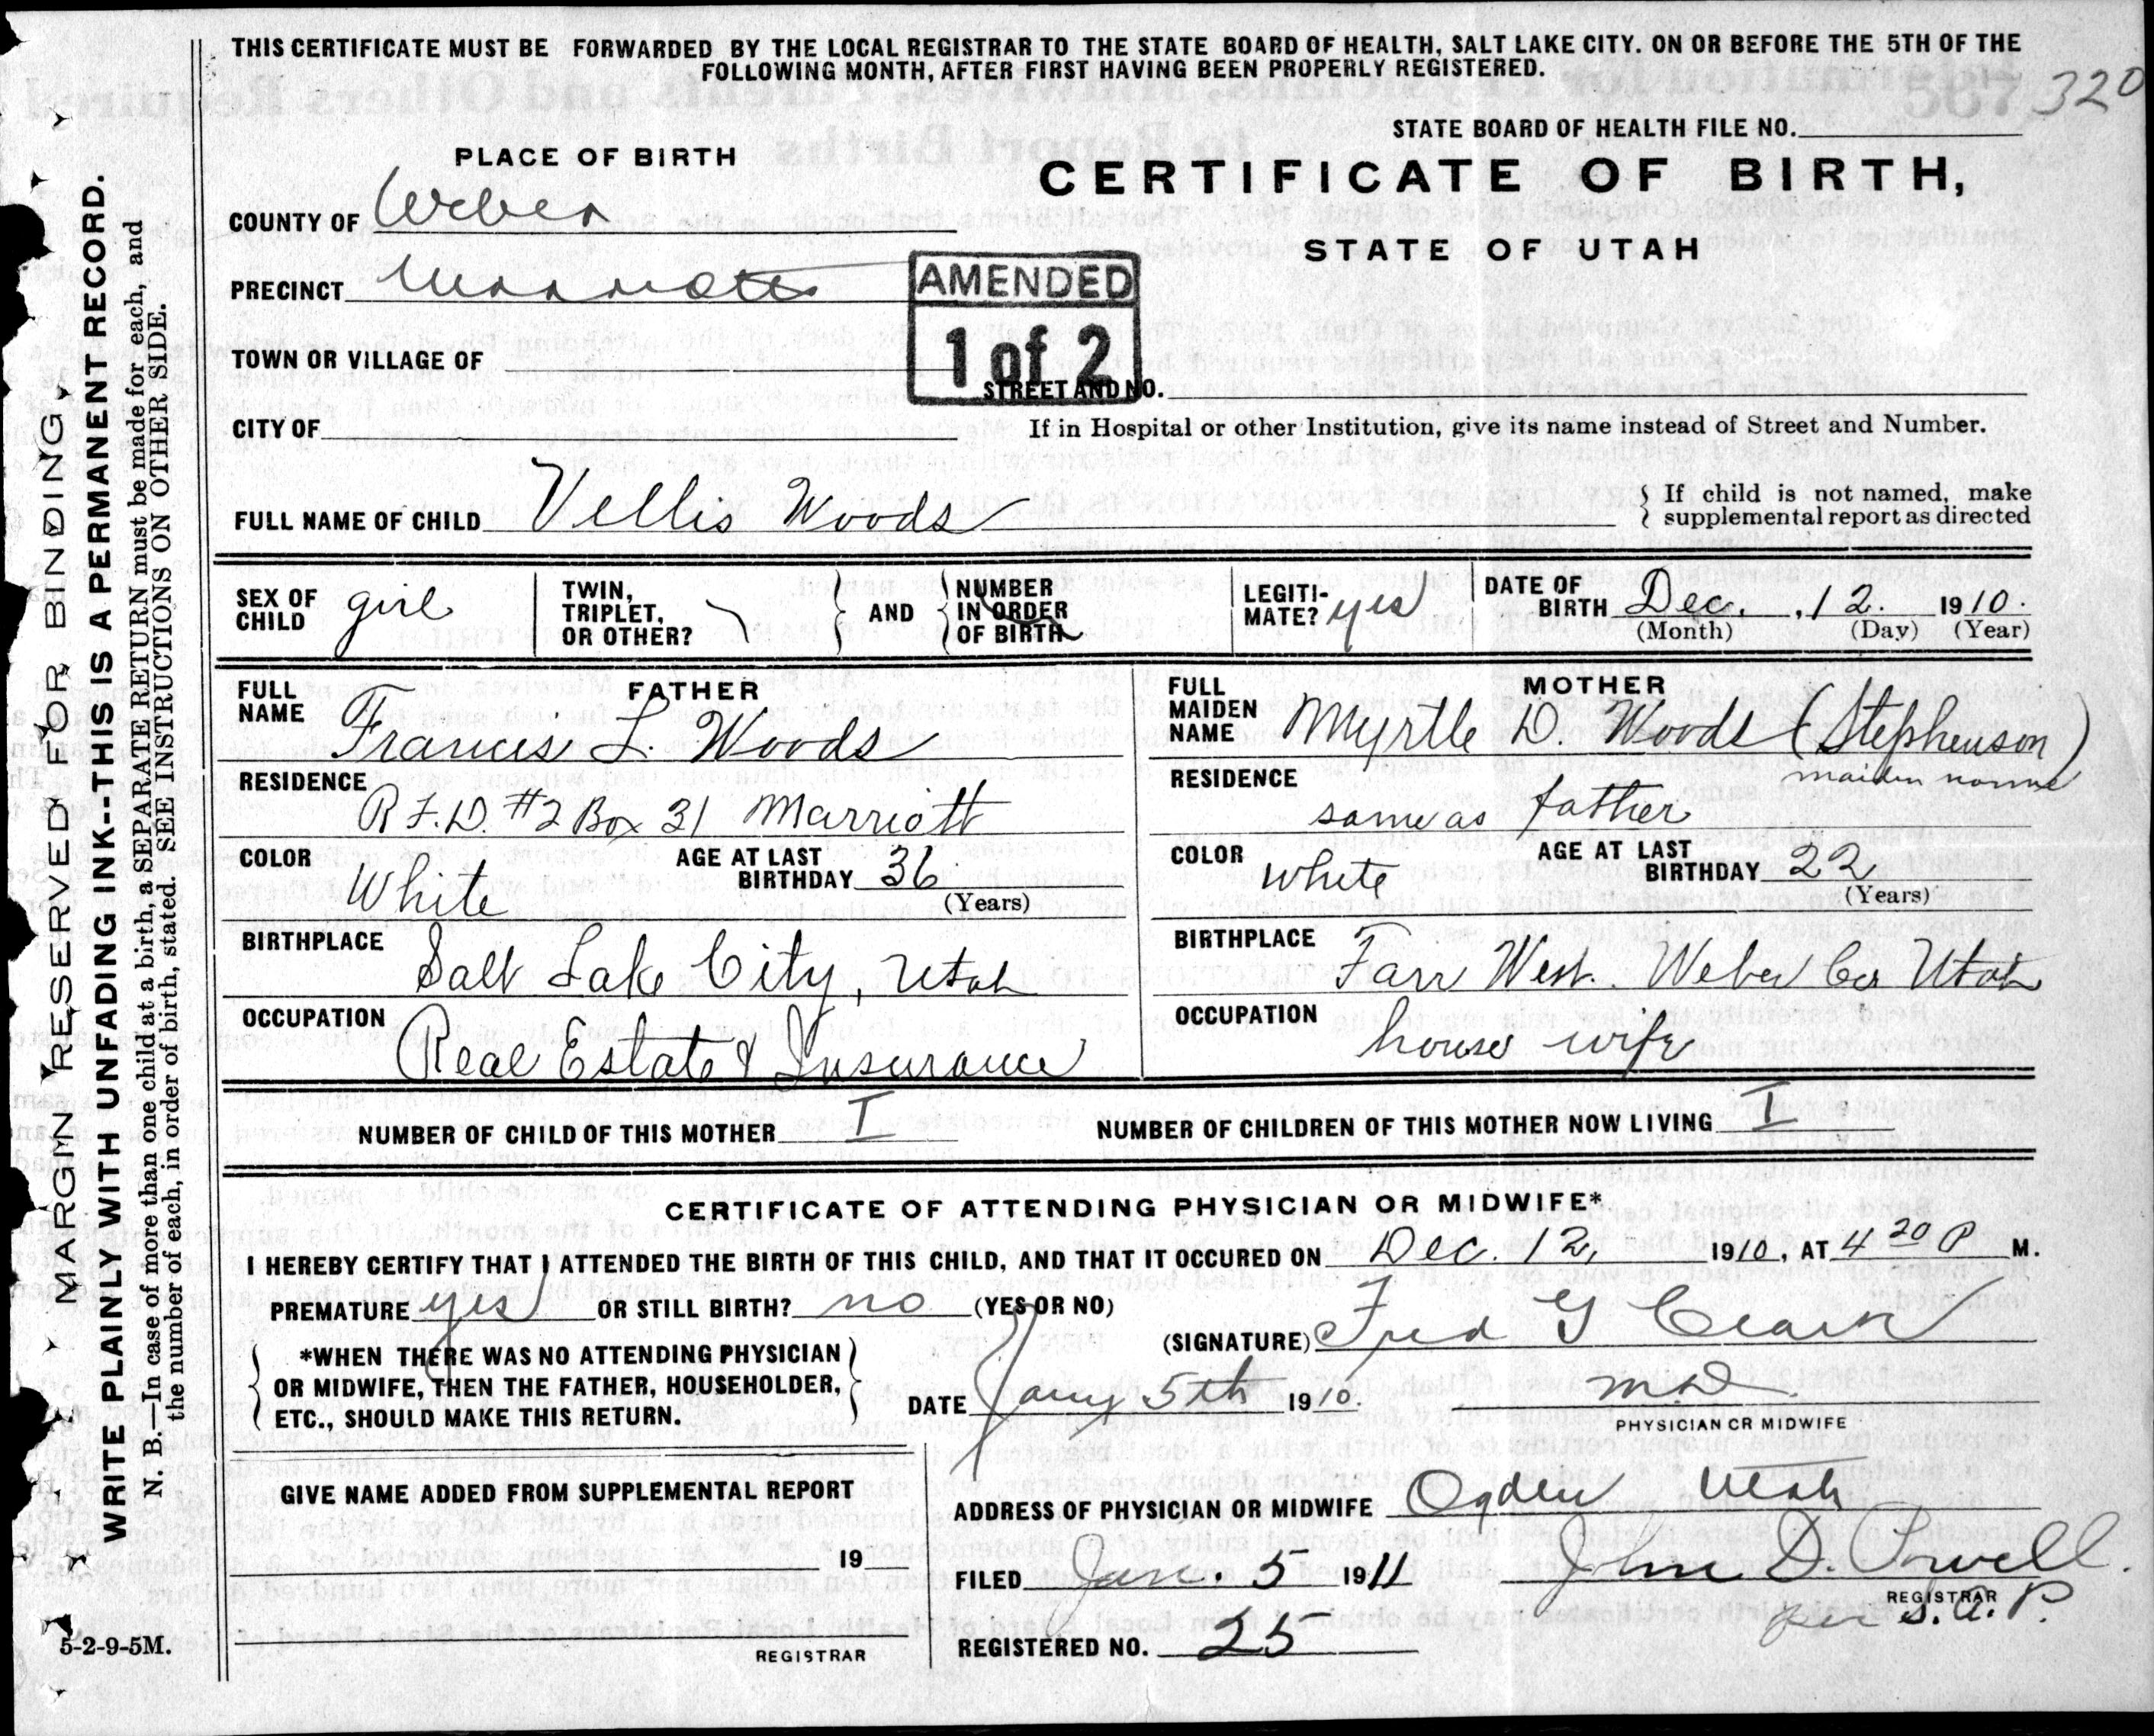 THIS CERTIFICATE MUST BE FORWARDED BY THE LOCAL REGISTRAR TO THE STATE BOARD OF HEALTH, SALT LAKE CITY. ON OR BEFORE THE 5TH OF THE
FOLLOWING MONTH, AFTER FIRST HAVING BEEN PROPERLY REGISTERED.
320
STATE BOARD OF HEALTH FILE NO.
PLACE OF BIRTH
CERTIFICATE OF BIRTH,
STATE OF UTAH
COUNTY OF Weber
PRECINCT Marriott
AMENDED
1 of 2
TOWN OR VILLAGE OF
STREET AND NO.
CITY OF
If in Hospital or other Institution, give its name instead of Street and Number.
FULL NAME OF CHILD Vellis Woods
If child is not named, make
supplemental report as directed
SEX OF CHILD girl
TWIN, TRIPLET, OR OTHER?
AND
NUMBER IN ORDER OF BIRTH
LEGITI-MATE? yes
DATE OF BIRTH Dec. , 12. 1910.
(Month) (Day) (Year)
FATHER
FULL NAME Francis L. Woods
RESIDENCE R.F.D. #2 Box 31 Marriott
COLOR White
AGE AT LAST BIRTHDAY 36
(Years)
BIRTHPLACE Salt Lake City, Utah
OCCUPATION Real Estate & Insurance
MOTHER
FULL MAIDEN NAME Myrtle D. Woods (Stephenson)
maiden name
RESIDENCE same as father
COLOR white
AGE AT LAST BIRTHDAY 22
(Years)
BIRTHPLACE Farr West. Weber Co Utah
OCCUPATION house wife
NUMBER OF CHILD OF THIS MOTHER I
NUMBER OF CHILDREN OF THIS MOTHER NOW LIVING I
CERTIFICATE OF ATTENDING PHYSICIAN OR MIDWIFE*
I HEREBY CERTIFY THAT I ATTENDED THE BIRTH OF THIS CHILD, AND THAT IT OCCURED ON Dec. 12, 1910, AT 4 20 P M.
PREMATURE yes OR STILL BIRTH? no (YES OR NO)
(SIGNATURE) Fred G Clark
*WHEN THERE WAS NO ATTENDING PHYSICIAN
OR MIDWIFE, THEN THE FATHER, HOUSEHOLDER,
ETC., SHOULD MAKE THIS RETURN.
DATE Jany 5th 1910.
M.D.
PHYSICIAN OR MIDWIFE
GIVE NAME ADDED FROM SUPPLEMENTAL REPORT
19
REGISTRAR
ADDRESS OF PHYSICIAN OR MIDWIFE Ogden Utah
FILED Jan. 5 1911
John D. Powell.
REGISTRAR
per S.A.P.
REGISTERED NO. 25
5-2-9-5M.
MARGIN RESERVED FOR BINDING
WRITE PLAINLY WITH UNFADING INK--THIS IS A PERMANENT RECORD.
N. B.—In case of more than one child at a birth, a SEPARATE RETURN must be made for each, and
the number of each, in order of birth, stated. SEE INSTRUCTIONS ON OTHER SIDE.